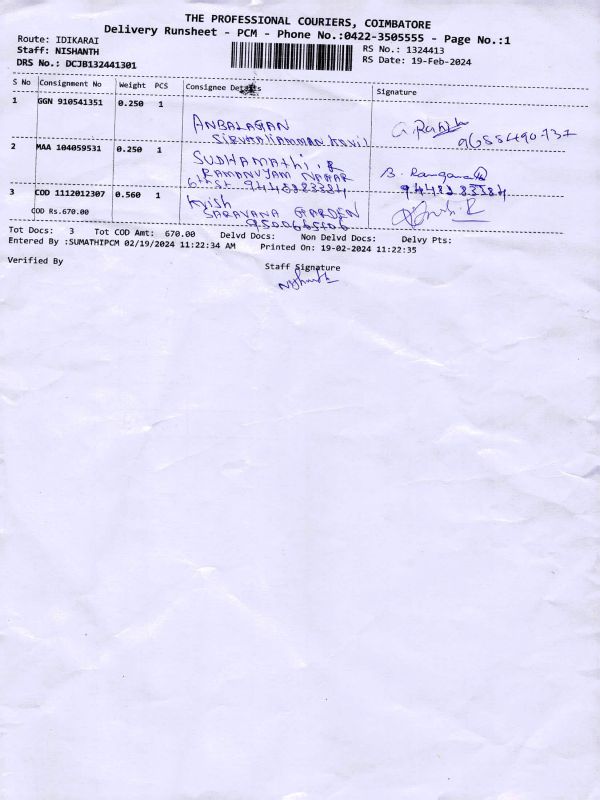 THE PROFESSIONAL COURIERS, COIMBATORE
Delivery Runsheet - PCM - Phone No.:0422-3505555 - Page No.:1
Route: IDIKARAI
Staff: NISHANTH
DRS No.: DCJB132441301
RS No.: 1324413
RS Date: 19-Feb-2024
S No Consignment No Weight PCS Consignee Details Signature
1 GGN 910541351 0.250 1
ANBALAGAN
9688490737
2 MAA 104059531 0.250 1
SUDHAMATHI. R
RAMANUJAM NAGAR
6th St. 9448283384
9448283384
3 COD 1112012307 0.560 1
Krish
SARAVANA GARDEN
COD Rs.670.00
Tot Docs: 3 Tot COD Amt: 670.00 Delvd Docs: Non Delvd Docs: Delvy Pts:
Entered By :SUMATHIPCM 02/19/2024 11:22:34 AM Printed On: 19-02-2024 11:22:35
Verified By
Staff Signature